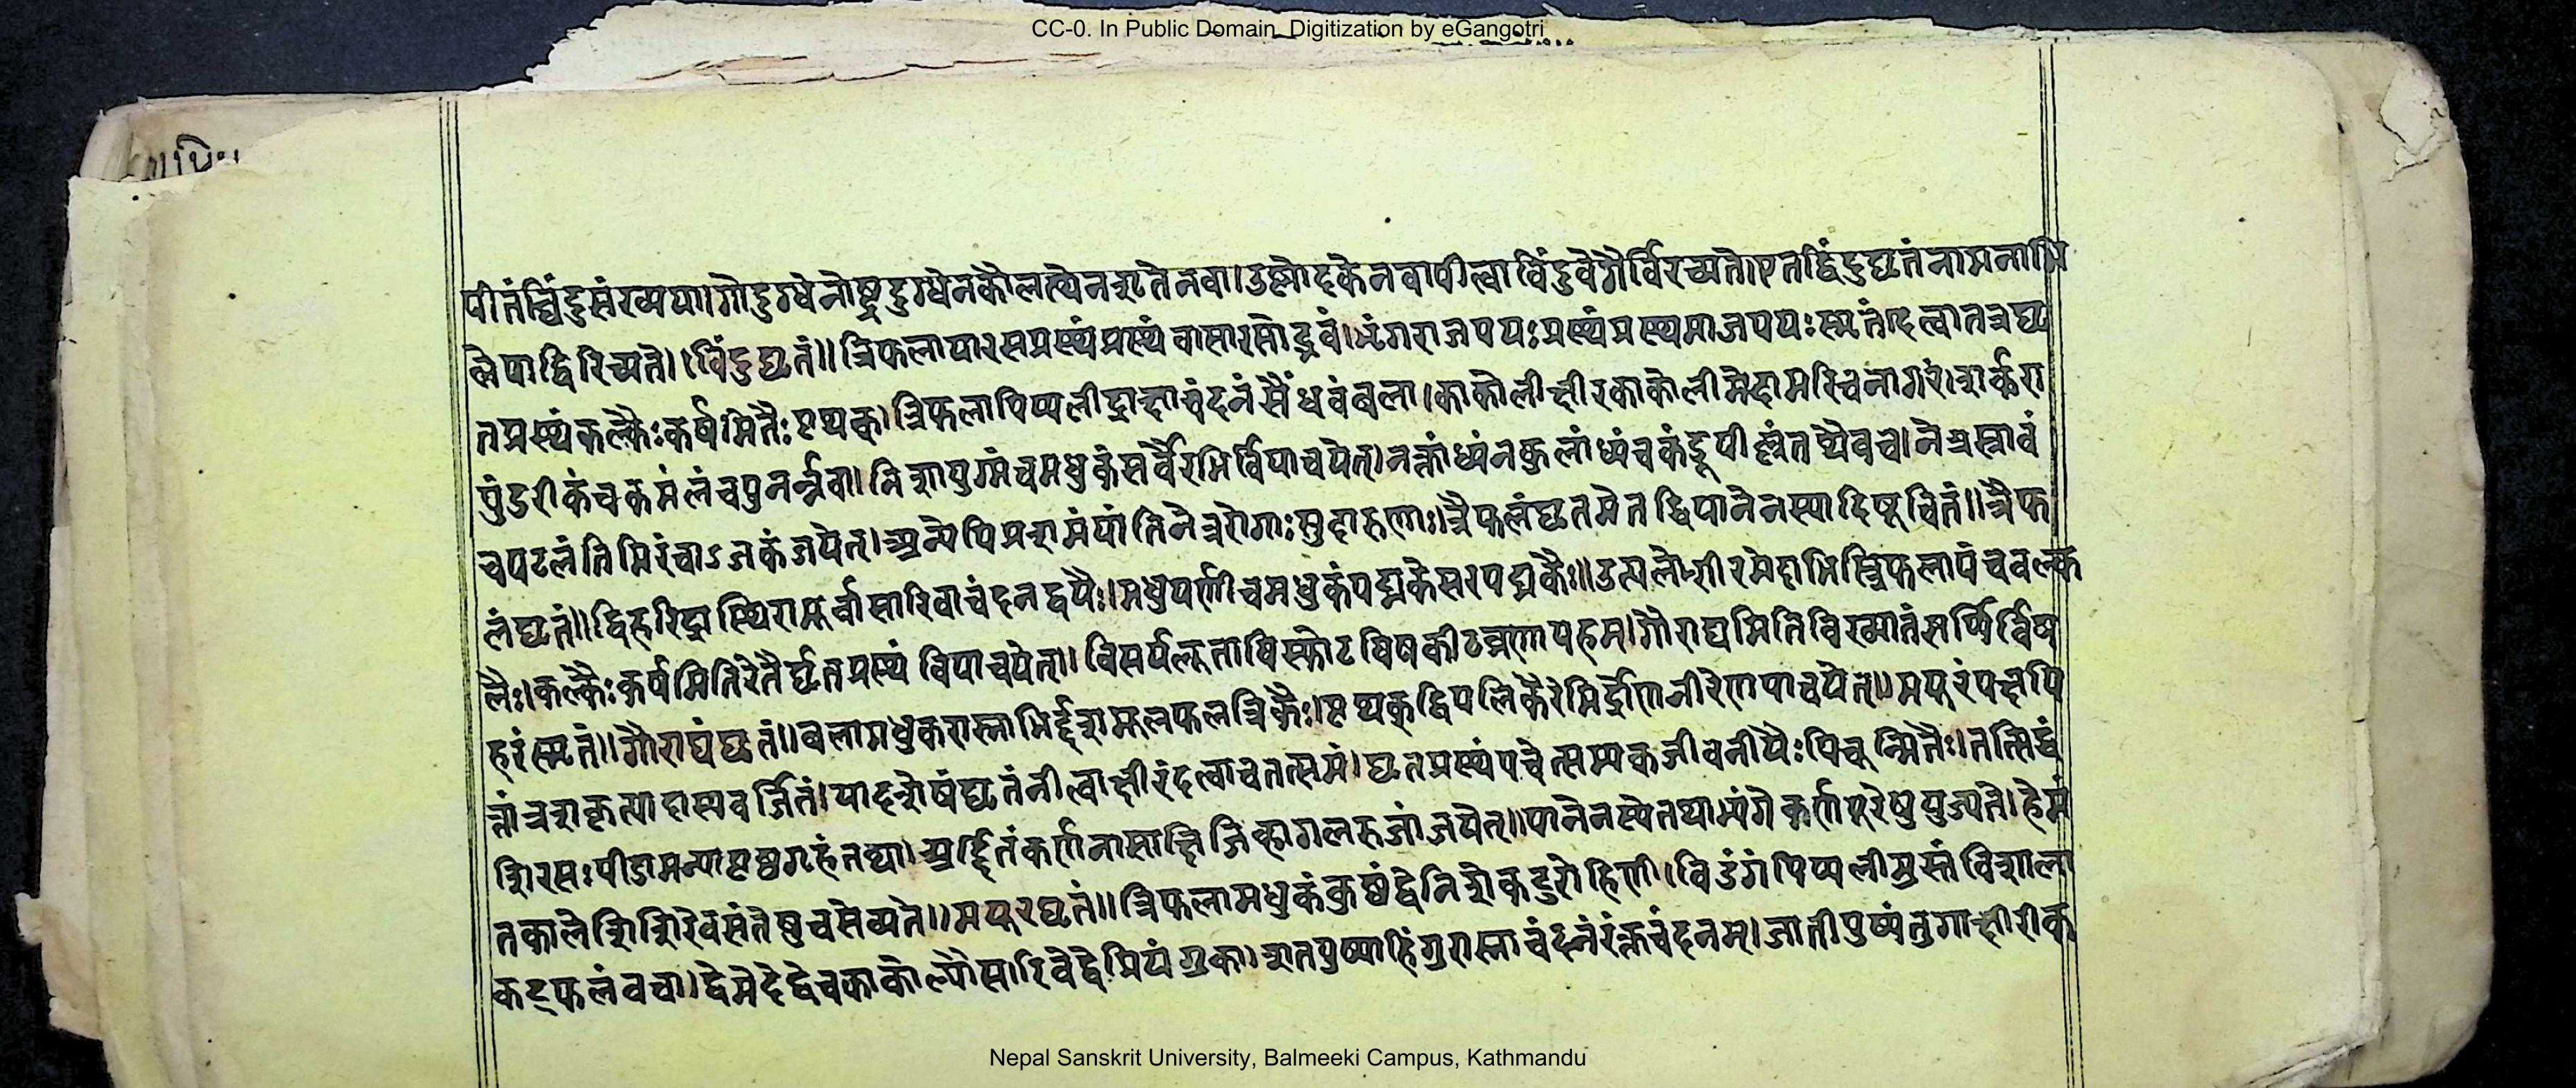 CC-0. In Public Domain. Digitization by eGangotri
पीतंबिंदुसंख्यया।गोदुग्धेनोष्ट्रदुग्धेनकौलत्थेनशृतेनवा।उष्णोदकेनवापीत्वाबिंदुवेगैर्विरच्यते।एतद्विंदुघृतंनामनाभि
लेपाद्विरिच्यते।।बिंदुघृतं॥त्रिफलायारसप्रस्थंप्रस्थंवासारसोद्भवं।भृंगराजपयःप्रस्थंप्रस्थमाजपयःस्मृतं।दत्वातत्रघृ
तप्रस्थंकल्कैःकर्षमितैःपृथक्।त्रिफलापिप्पलीद्राक्षाचंदनंसैंधवंबला।काकोलीक्षीरकाकोलीमेदामरिचनागरं।शर्करा
पुंडरीकंचकमलंचपुनर्न्नवा।निशायुग्मंचमधुकंसर्वैरभिर्विपाचयेत्।नक्तांध्यंनकुलांध्यंचकंडूपील्लंतथैवच।नेत्रस्त्रावं
चपटलंतिमिरंचाऽजकंजयेत्।अन्येपिप्रशमंयांतिनेत्ररोगाःसुदारुणाः।त्रैफलंघृतमेतद्धिपानेनस्यादिषूचितं॥त्रैफ
लंघृतं॥द्विहरिद्रास्थिरामूर्वासारिवाचंदनद्वयैः।मधुपर्णीचमधुकंपद्मकेसरपद्मकैः॥उत्पलोशीरमेदाभिस्त्रिफलापंचवल्क
लैः।कल्कैःकर्षमितिरेतैर्घृतप्रस्थं विपाचयेत्।। विसर्पलूताविस्फोटविषकीटव्रणापहम्।गौराद्यमितिविख्यातंसर्प्पिर्विष
हरंस्मृतं।।गौराद्यंघृतं॥बलामधुकरास्नाभिर्द्दशमूलफलत्रिकैः।पृथक्द्विपलिकैरेभिर्द्रोणनीरेणपाचयेत्॥मयूरंपक्षपि
त्तांत्रशकृत्पादास्यवर्जितं।पादशेषंघृतंनीत्वाक्षीरंदत्वाचतत्समं।घृतप्रस्थंपचेत्सम्यकजीवनीयैःपिचून्मितैः।तत्सिद्धं
शिरसःपीडामन्यापृष्ठग्रहंतथा।अर्द्दितंकर्णनासाक्षिजिह्वागलरुजांजयेत्॥पानेनस्येतथाभ्यंगेकर्णपूरेषुयुज्यते।हेमं
तकालेशिशिरेवसंतेषुचसेव्यते॥मयूरघृतं॥त्रिफलामधुकंकुष्ठंद्वेनिशेकटुरोहिणी।विडंगंपिप्पलीमुस्तंविशाला
कट्फलंवचा।द्वेमेदेद्वेचकाकोल्यौसारिवेद्वेप्रियंगुका।शतपुष्पाहिंगुरास्नाचंदनंरंक्तचंदनम्।जातीपुष्पंतुगाक्षीरीक
Nepal Sanskrit University, Balmeeki Campus, Kathmandu